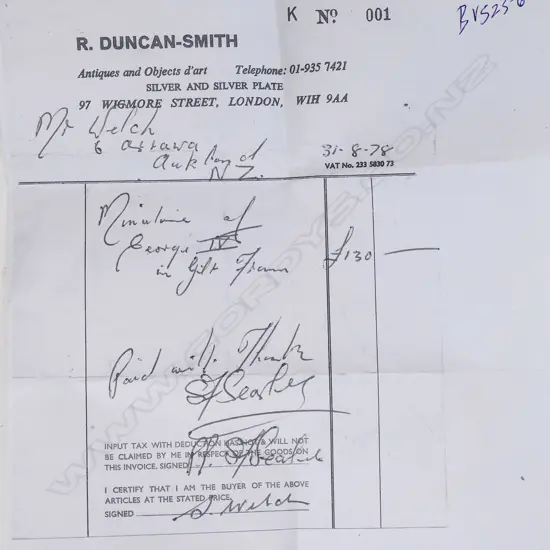 K No 001
BVS25-6
R. DUNCAN-SMITH
Antiques and Objects d'art Telephone: 01-935 7421
SILVER AND SILVER PLATE
97 WIGMORE STREET, LONDON, WIH 9AA
Mr Welch
6
Auckland
NZ.
31-8-78
VAT No. 233 5830 73
Miniature of
George IV
in Gilt Frame
£130
Paid with Thanks
INPUT TAX WITH DEDUCTION HAS NOT & WILL NOT
BE CLAIMED BY ME IN RESPECT OF THE GOODS ON
THIS INVOICE. SIGNED
I CERTIFY THAT I AM THE BUYER OF THE ABOVE
ARTICLES AT THE STATED PRICE.
SIGNED S. Welch